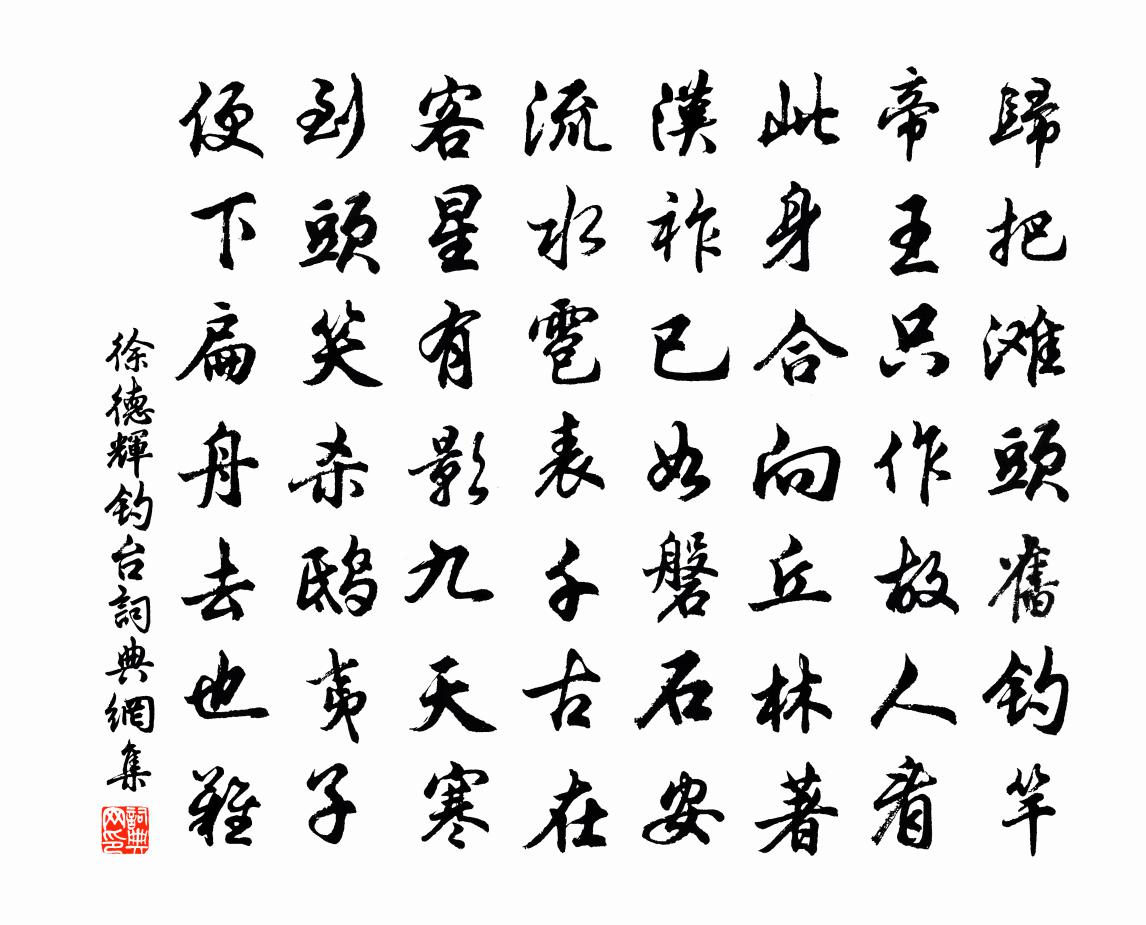 歸把滩頭舊钓竿
帝王只作故人看
此身合向丘林著
漢祚已如磐石安
流水雹表千古在
客星有影九天寒
到頭笑杀鸱夷子
便下扁舟去也難
徐德輝钓台詞典網集
詞典网印